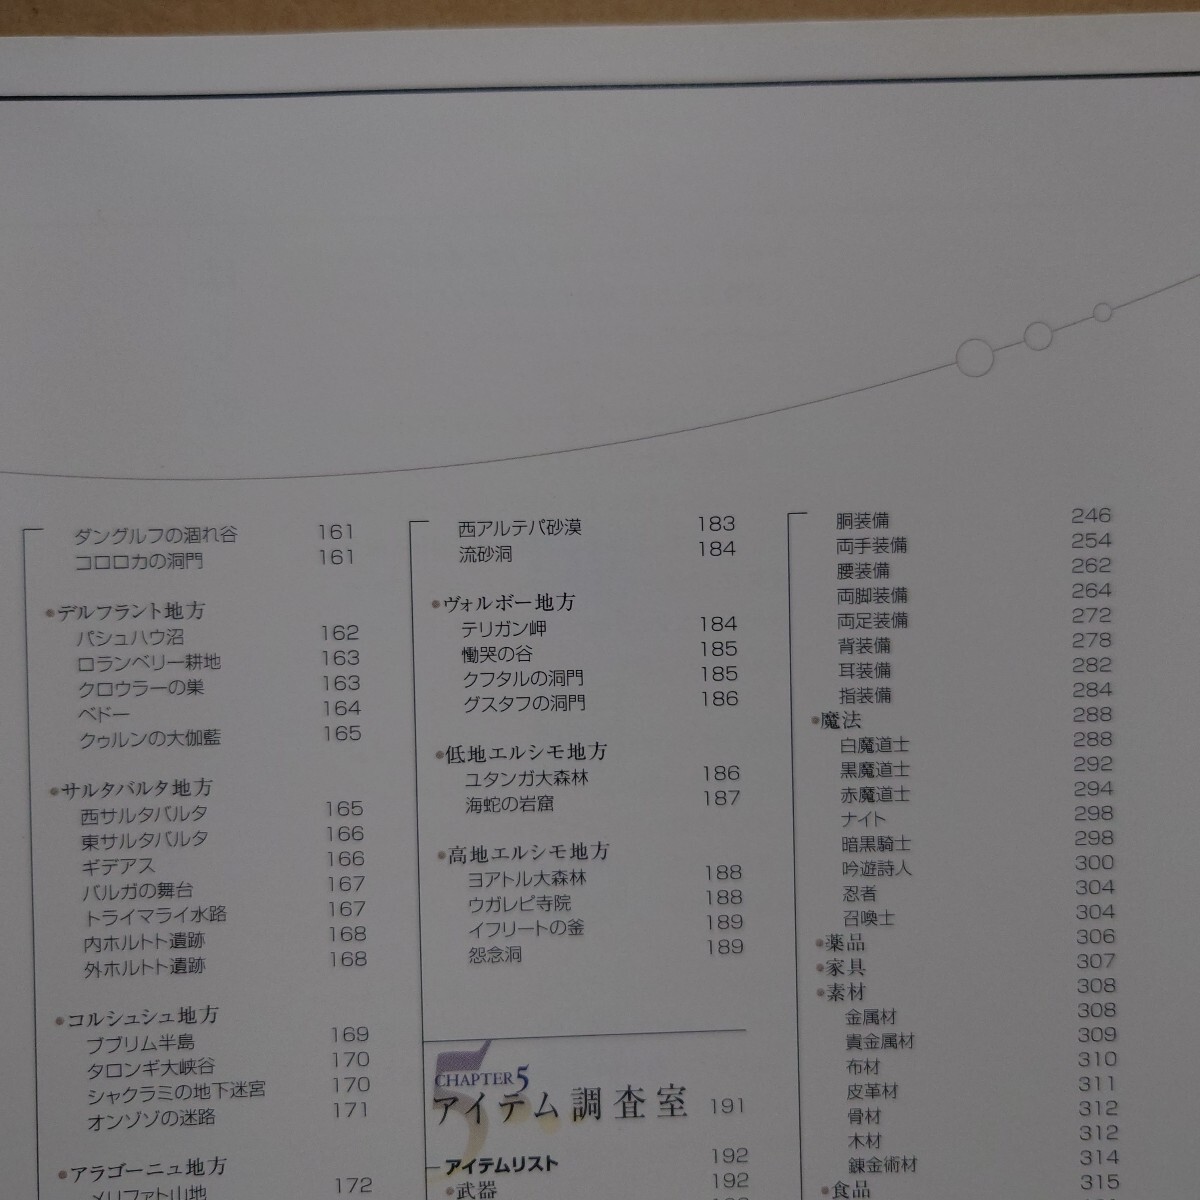 ダングルフの涸れ谷 161
コロロカの洞門 161
●デルフラント地方
パシュハウ沼 162
ロランベリー耕地 163
クロウラーの巣 163
ベドー 164
クゥルンの大伽藍 165
●サルタバルタ地方
西サルタバルタ 165
東サルタバルタ 166
ギデアス 166
バルガの舞台 167
トライマライ水路 167
内ホルトト遺跡 168
外ホルトト遺跡 168
●コルシュシュ地方
ブブリム半島 169
タロンギ大峡谷 170
シャクラミの地下迷宮 170
オンゾゾの迷路 171
●アラゴーニュ地方
メリファト山地 172
西アルテパ砂漠 183
流砂洞 184
●ヴォルボー地方
テリガン岬 184
慟哭の谷 185
クフタルの洞門 185
グスタフの洞門 186
●低地エルシモ地方
ユタンガ大森林 186
海蛇の岩窟 187
●高地エルシモ地方
ヨアトル大森林 188
ウガレピ寺院 188
イフリートの釜 189
怨念洞 189
5
CHAPTER 5
アイテム調査室 191
アイテムリスト 192
●武器 192
胴装備 246
両手装備 254
腰装備 262
両脚装備 264
両足装備 272
背装備 278
耳装備 282
指装備 284
●魔法 288
白魔道士 288
黒魔道士 292
赤魔道士 294
ナイト 298
暗黒騎士 298
吟遊詩人 300
忍者 304
召喚士 304
●薬品 306
●家具 307
●素材 308
金属材 308
貴金属材 309
布材 310
皮革材 311
骨材 312
木材 312
錬金術材 314
●食品 315